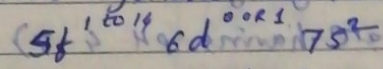 5f 1 to 14 6d 0 or 1 7s2